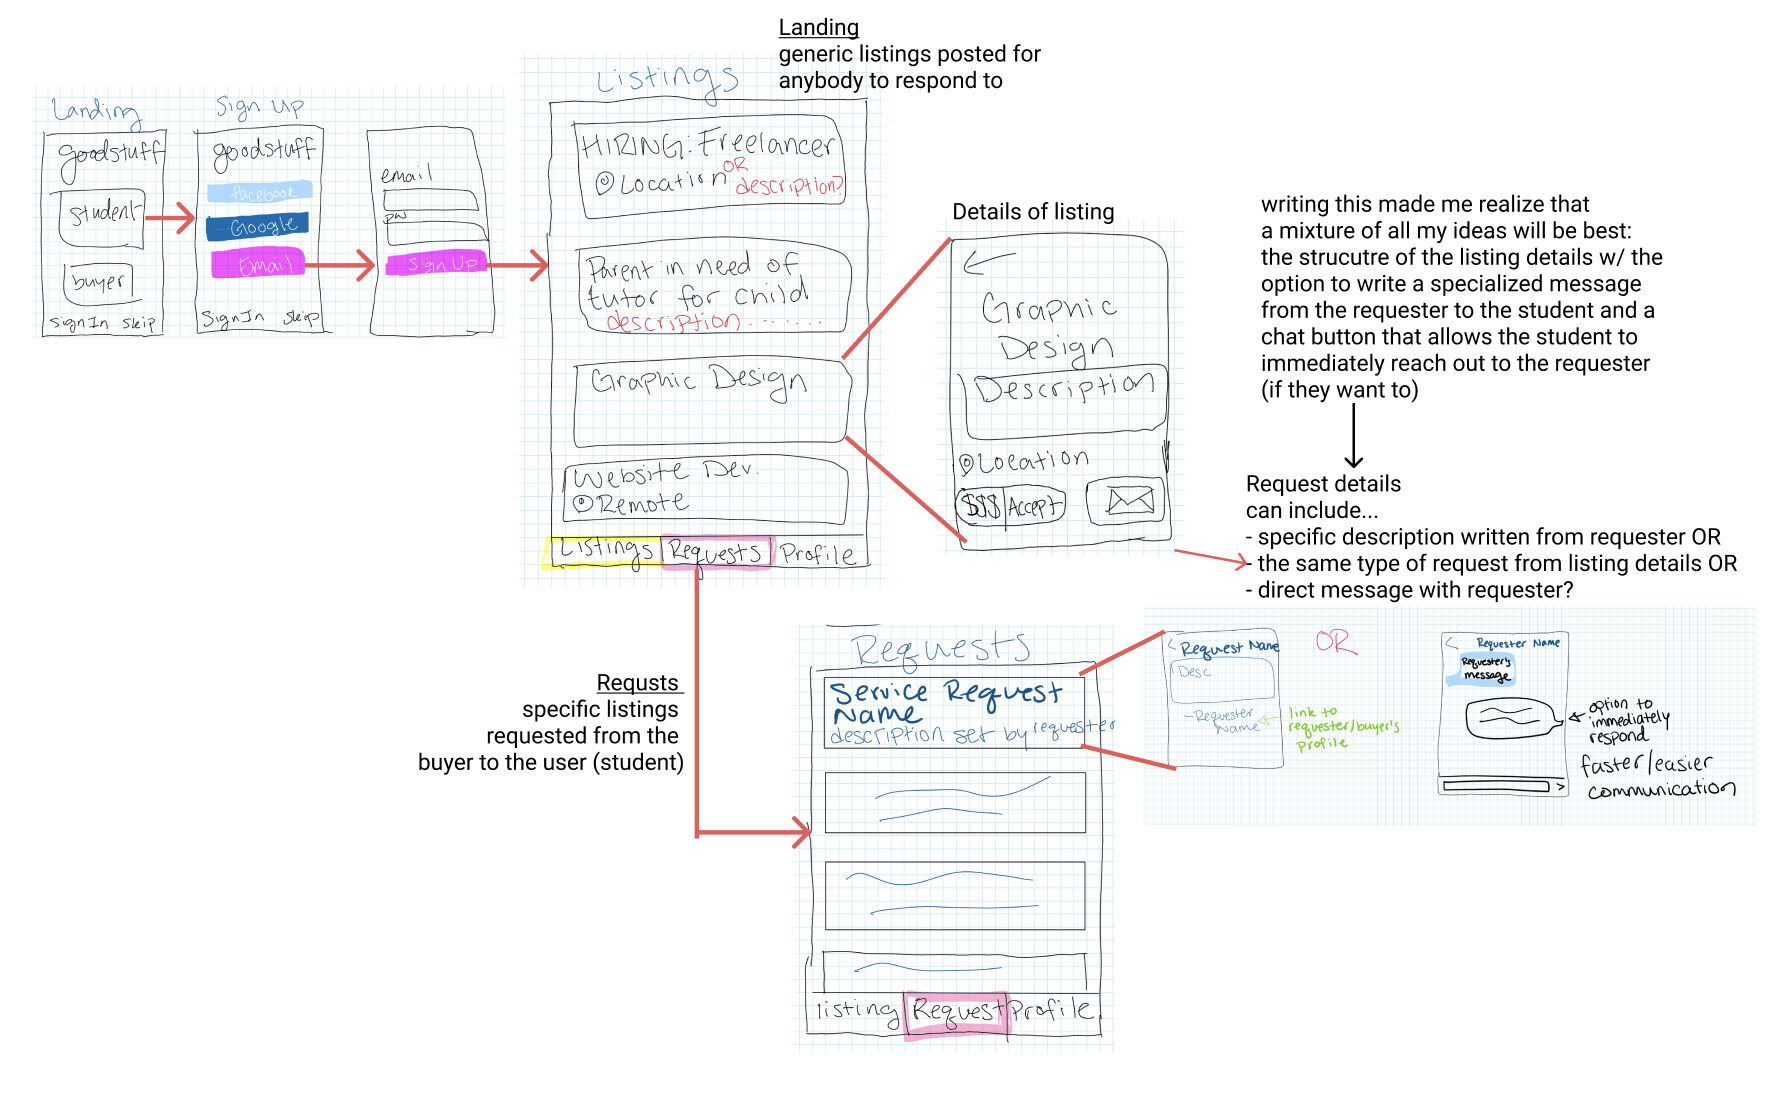 Landing
goodstuff
student
buyer
Sign In Skip
Sign Up
goodstuff
facebook
Google
Email
Sign In Skip
email
pw
Sign Up
Landing
generic listings posted for
anybody to respond to
Listings
HIRING: Freelancer
Location OR
description?
Parent in need of
tutor for child
description.......
Graphic Design
Website Dev.
Remote
Listings Requests Profile
Details of listing
Graphic
Design
Description
Location
$$$ Accept
writing this made me realize that
a mixture of all my ideas will be best:
the strucutre of the listing details w/ the
option to write a specialized message
from the requester to the student and a
chat button that allows the student to
immediately reach out to the requester
(if they want to)
Request details
can include...
- specific description written from requester OR
- the same type of request from listing details OR
- direct message with requester?
Requsts
specific listings
requested from the
buyer to the user (student)
Requests
Service Request
Name
description set by requester
listing Request Profile
< Request Name
Desc.
- Requester
Name
link to
requester/buyer's
profile
OR
< Requester Name
Requester's
message
option to
immediately
respond
faster/easier
communication
>